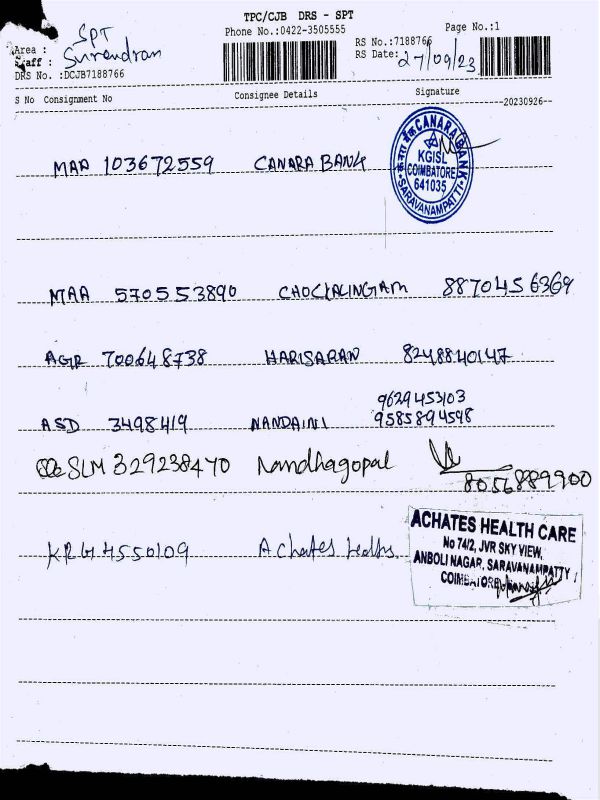 TPC/CJB DRS - SPT
Phone No.:0422-3505555
Page No.:1
Area : SPT
Staff : Surendran
RS No.:7188766
RS Date: 27/09/23
DRS No. :DCJB7188766
S No Consignment No Consignee Details Signature
20230926
MAA 103672559 CANARA BANK
केनरा बैंक CANARA BANK
KGISL
COIMBATORE
641035
SARAVANAMPATTI
MAA 570553890 CHOCKALINGAM 8870456369
AGR 700648738 HARISARAN 8248840147
9629453103
ASD 3498419 NANDAINI 9585894598
SLM 329238470 Nandhagopal
8056889900
KRG 4550109 Achates Healths.
ACHATES HEALTH CARE
No 74/2, JVR SKY VIEW,
ANBOLI NAGAR, SARAVANAMPATTY
COIMBATORE